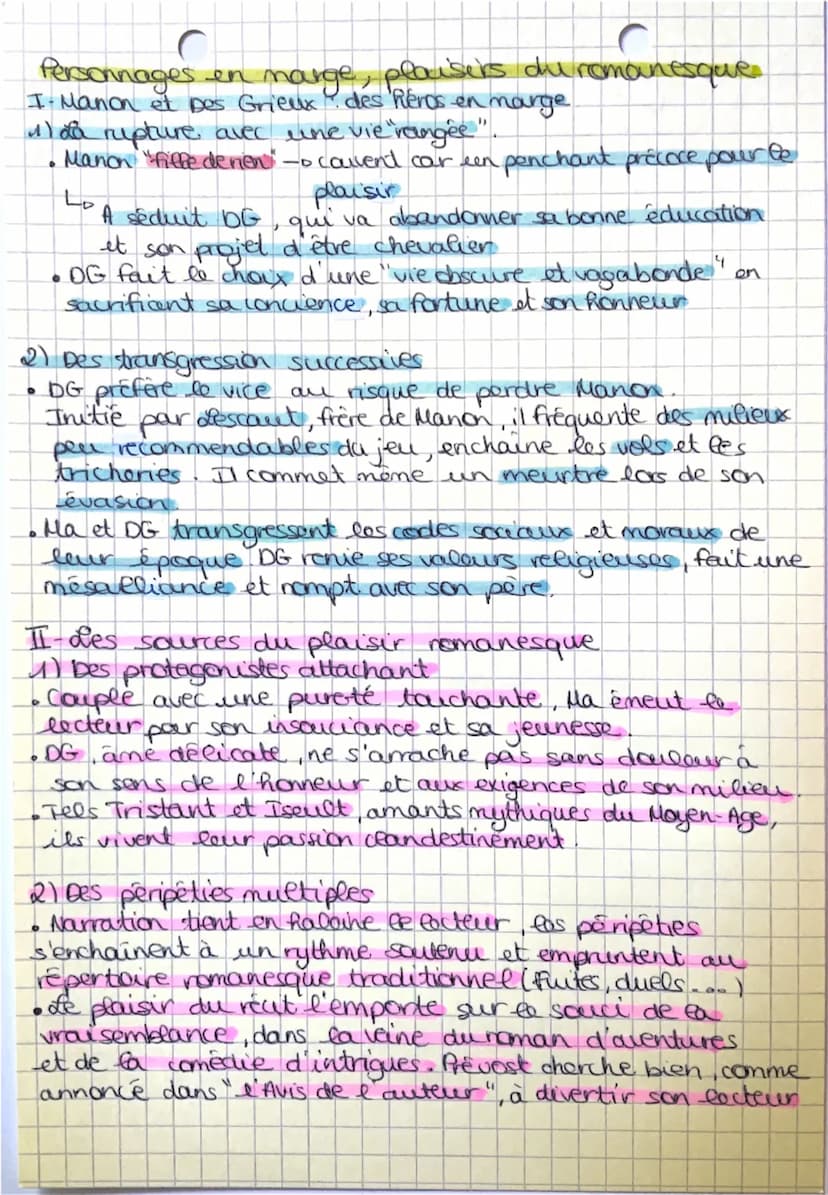 Personnages en marge, plaisirs du romanesque
I- Manon et Des Grieux : des héros en marge
1) La rupture avec une vie "rangée".
• Manon "fille de rien" → couvent car un penchant précoce pour le
plaisir
↳ A séduit DG, qui va abandonner sa bonne éducation
et son projet d'être chevalier
• DG fait le choix d'une "vie obscure et vagabonde" en
sacrifiant sa concience, sa fortune et son honneur
2) Des transgression successives
• DG préfère le vice au risque de perdre Manon.
Initié par Lescaut, frère de Manon, il fréquente des milieux
peu recommendables du jeu, enchaine les vols et les
tricheries. Il commet même un meurtre lors de son
évasion.
• Ma et DG transgressent les codes sociaux et moraux de
leur époque. DG renie ses valeurs religieuses, fait une
mésalliance et rompt avec son père.
II- Les sources du plaisir romanesque
1) Des protagonistes attachant
• Couple avec une pureté touchante, Ma émeut le
lecteur par son insouciance et sa jeunesse.
• DG, âme délicate, ne s'arrache pas sans douleur à
son sens de l'honneur et aux exigences de son milieu.
• Tels Tristant et Iseult, amants mythiques du Moyen-Age,
ils vivent leur passion clandestinement.
2) Des péripéties multiples
• Narration tient en haleine le lecteur, les péripéties
s'enchaînent à un rythme soutenu et empruntent au
répertoire romanesque traditionnel (fuites, duels...)
• Le plaisir du récit l'emporte sur le souci de la
vraisemblance, dans la veine du roman d'aventures
et de la comédie d'intrigues. Prévost cherche bien, comme
annoncé dans "l'Avis de l'auteur", à divertir son lecteur